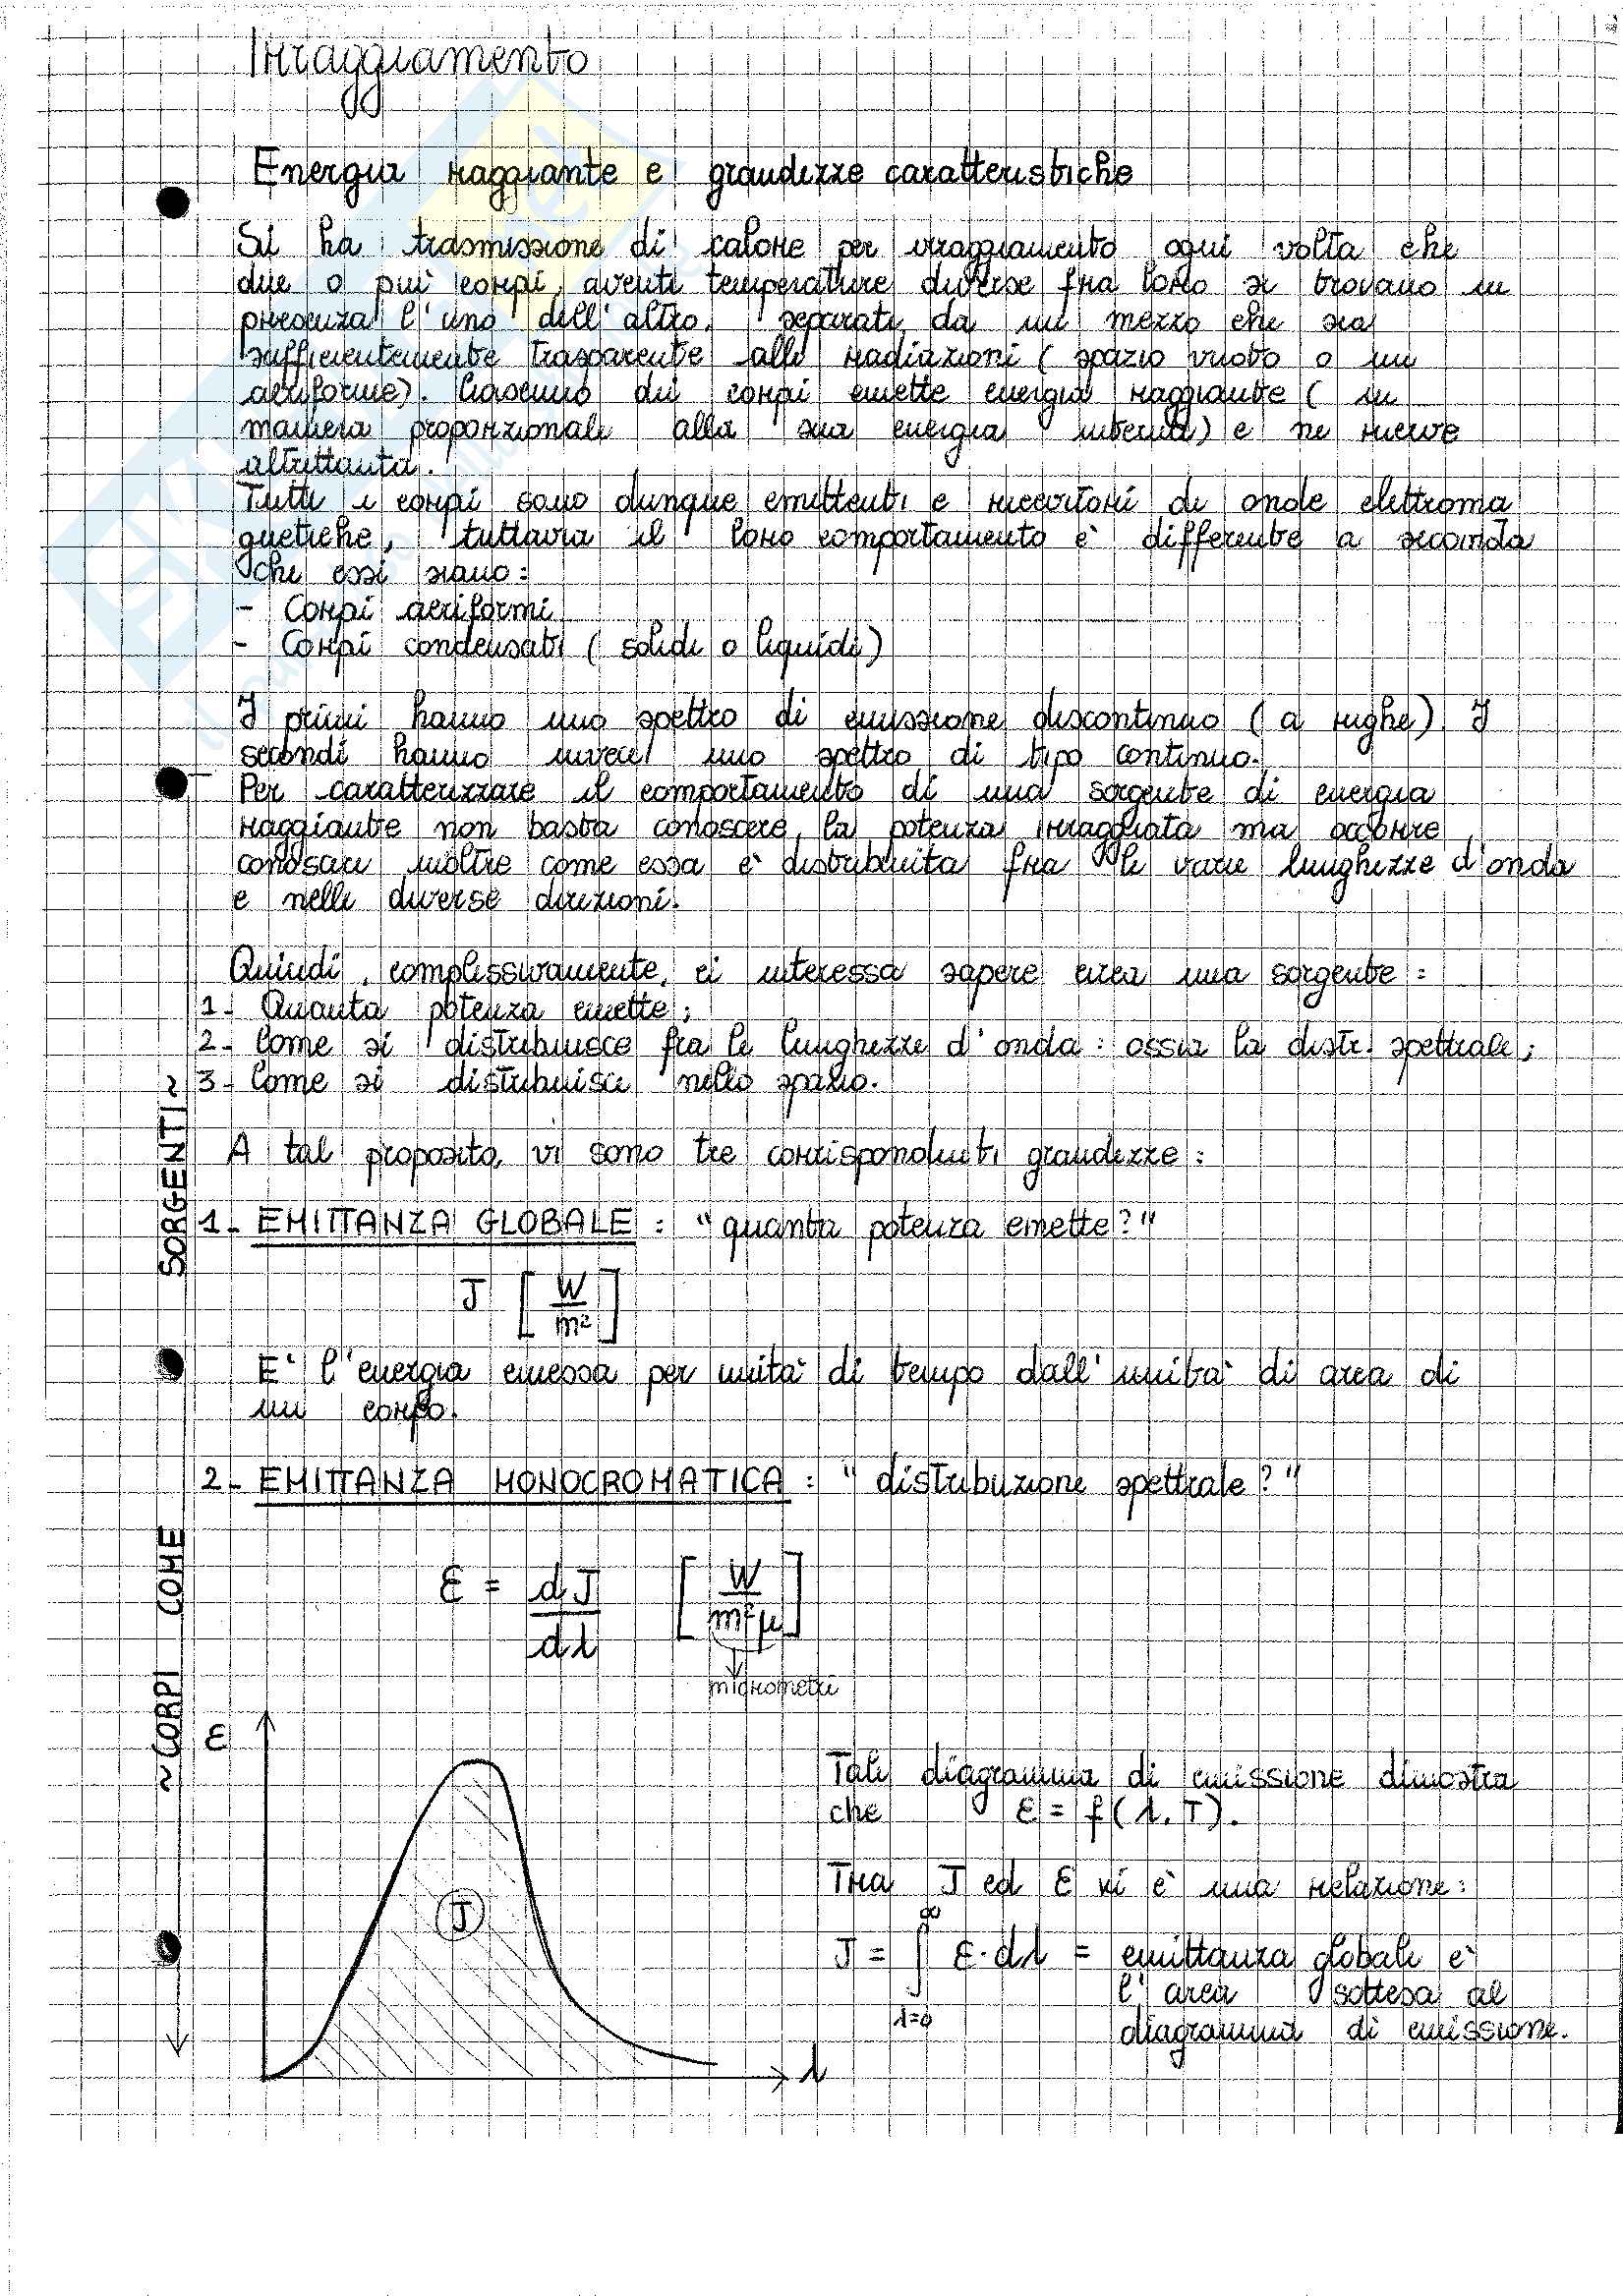 Irraggiamento
Energia raggiante e grandezze caratteristiche
Si ha trasmissione di calore per irraggiamento ogni volta che
due o più corpi, aventi temperature diverse fra loro si trovano in
presenza l'uno dell'altro, separati da un mezzo che sia
sufficientemente trasparente alle radiazioni (spazio vuoto o un
aeriforme). Ciascuno dei corpi emette energia raggiante (in
maniera proporzionale alla sua energia interna) e ne riceve
altrettanta.
Tutti i corpi sono dunque emittenti e ricettori di onde elettroma
gnetiche, tuttavia il loro comportamento è differente a seconda
che essi siano:
- Corpi aeriformi
- Corpi condensati (solidi o liquidi)
I primi hanno uno spettro di emissione discontinuo (a righe). I
secondi hanno invece uno spettro di tipo continuo.
Per caratterizzare il comportamento di una sorgente di energia
raggiante non basta conoscere la potenza irraggiata ma occorre
conoscere inoltre come essa è distribuita fra le varie lunghezze d'onda
e nelle diverse direzioni.
Quindi, complessivamente, ci interessa sapere circa una sorgente:
1- Quanta potenza emette;
2- Come si distribuisce fra le lunghezze d'onda: ossia la distr. spettrale;
3- Come si distribuisce nello spazio.
A tal proposito, vi sono tre corrispondenti grandezze:
1- EMITTANZA GLOBALE: "quanta potenza emette?"
J [W/m²]
E' l'energia emessa per unità di tempo dall'unità di area di
un corpo.
2- EMITTANZA MONOCROMATICA: "distribuzione spettrale?"
ε = dJ/dλ [W/m²μ]
micrometri
~ CORPI COME SORGENTI ~
ε
J
λ
Tale diagramma di emissione dimostra
che ε = f(λ,T).
Tra J ed ε vi è una relazione:
J = ∫ ∞ λ=0 ε·dλ = emittanza globale è
l'area sottesa al
diagramma di emissione.